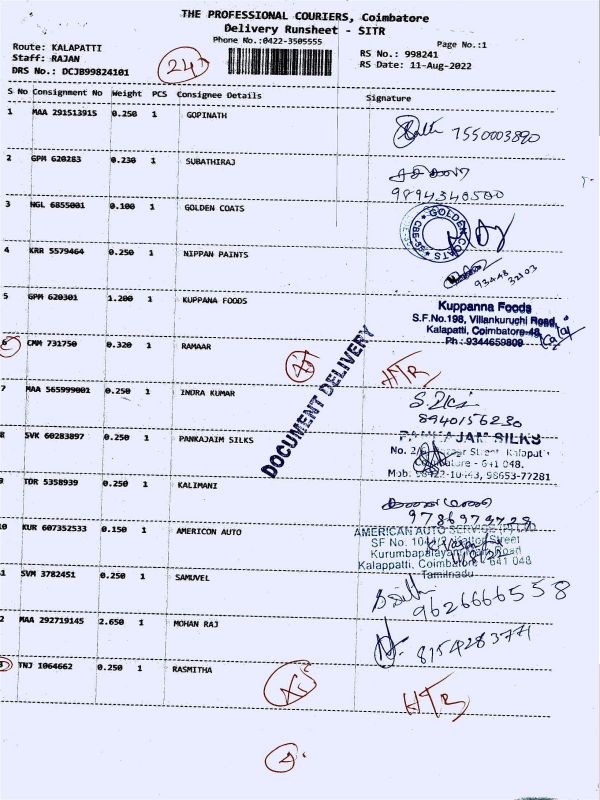 THE PROFESSIONAL COURIERS, Coimbatore
Delivery Runsheet - SITR
Phone No.:0422-3505555
Page No.:1
Route: KALAPATTI
Staff: RAJAN
DRS No.: DCJB99824101
24
RS No.: 998241
RS Date: 11-Aug-2022
S No Consignment No Weight PCS Consignee Details Signature
1 MAA 291513915 0.250 1 GOPINATH 7550003890
2 GPM 620283 0.230 1 SUBATHIRAJ
9894340500
3 NGL 6855001 0.100 1 GOLDEN COATS
GOLDEN COATS
4 KRR 5579464 0.250 1 NIPPAN PAINTS
93448 32103
5 GPM 620301 1.200 1 KUPPANA FOODS
Kuppanna Foods
S.F.No.198, Villankuruchi Road,
Kalapatti, Coimbatore-48,
Ph : 9344659809
6 CMM 731750 0.320 1 RAMAAR
DOCUMENT DELIVERY
7 MAA 565999001 0.250 1 INDRA KUMAR
8940156230
8 SVK 60283897 0.250 1 PANKAJAIM SILKS
PANKAJAM SILKS
Coimbatore - 641 048.
98653-77281
9 TOR 5358939 0.250 1 KALIMANI
9786979728
10 KUR 607352533 0.150 1 AMERICON AUTO
AMERICAN AUTO SERVICE
SF No. 104
Street
Kurumbapalayam
Road
Kalappatti, Coimbatore - 641 048
Tamilnadu
11 SVM 3782451 0.250 1 SAMUVEL
9626666558
12 MAA 292719145 2.650 1 MOHAN RAJ
8154283771
13 TNJ 1064662 0.250 1 RASMITHA